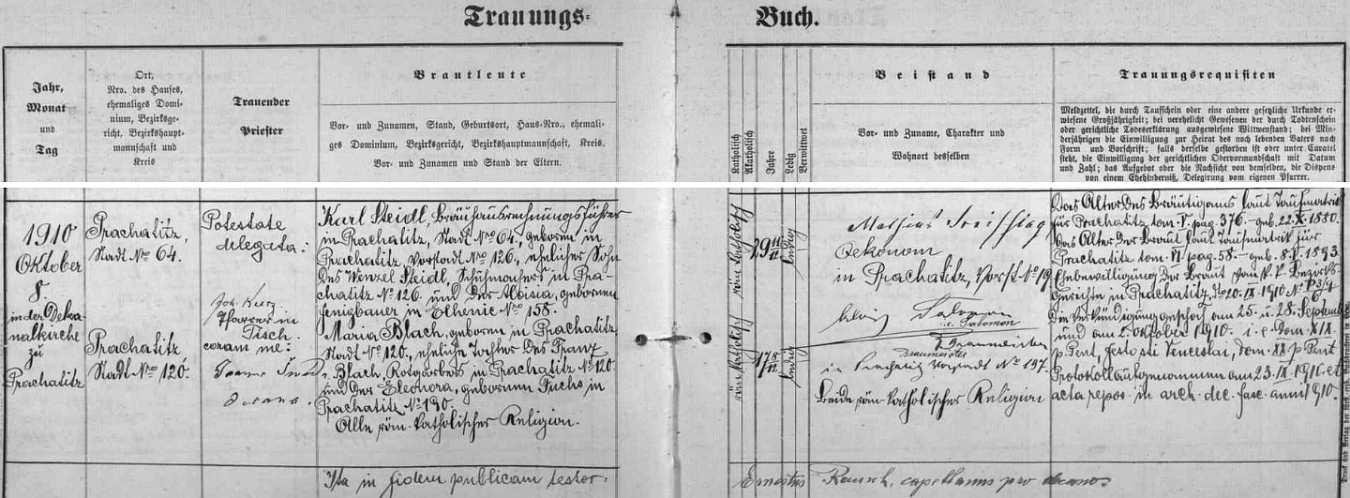 Trauungs-
Buch.
Jahr,
Monat
und
Tag
Ort,
Nro. des Hauses,
ehemaliges Domi-
nium, Bezirksge-
richt, Bezirkshaupt-
mannschaft und
Kreis
Trauender
Priester
Brautleute
Vor- und Zunamen, Stand, Geburtsort, Haus-Nro., ehemali-
ges Dominium, Bezirksgericht, Bezirkshauptmannschaft, Kreis.
Vor- und Zunamen und Stand der Eltern.
Katholisch
Akatholisch
Jahre
Ledig
Verwittwet
Beistand
Vor- und Zuname, Charakter und
Wohnort desselben
Trauungsrequisiten
Meldzettel, die durch Taufschein oder eine andere gesetzliche Urkunde er-
wiesene Großjährigkeit; bei verehelicht Gewesenen der durch Todtenschein
oder gerichtliche Todeserklärung ausgewiesene Wittwenstand; bei Min-
derjährigen die Einwilligung zur Heirat des noch lebenden Vaters nach
Form und Vorschrift; falls derselbe gestorben ist oder unter Curatel
steht, die Einwilligung der gerichtlichen Obervormundschaft mit Datum
und Zahl; das Aufgebot oder die Nachsicht von demselben, die Dispens
von einem Ehehinderniß, Delegirung vom eigenen Pfarrer.
1910
Oktober
8.
in der Deka-
nalkirche
zu
Prachatitz
Prachatitz,
Stadt Nro 64.
Prachatitz
Stadt Nro 120.
Potestate
delegata:
Joh. Kurz
Pfarrer in
Tisch
coram me:
decano.
Karl Steidl, Bräuhausrechnungsführer
in Prachatitz, Stadt Nro 64, geboren in
Prachatitz, Vorstadt Nro 126, ehelicher Sohn
des Wenzel Steidl, Schuhmachers in Pra-
chatitz No 126 und der Aloisia, gebornen
Jenigbauer in Elhenic No 158.
Maria Blach, geboren in Prachatitz,
Stadt No 120, eheliche Tochter des Franz
Blach, Rotgärbers in Prachatitz No 120
und der Eleonora, gebornen Fuchs in
Prachatitz No 190.
Alle röm-katholischer Religion.
röm katholisch
29 11/12
ledig
röm katholisch
17 8/12
ledig
Mathias
Oekonom
in Prachatitz, Vorst. No 19
Alois Salomon
i.e. Salomon
Braumeister
Braumeister
in Prachatitz Vorstadt No 197.
beide röm katholischer Religion
Das Alter des Bräutigams laut Taufmatrik
für Prachatitz tom. V. pag. 376 - geb. 22.X. 1880.
Das Alter der Braut laut Taufmatrik für
Prachatitz tom. VI pag. 58. - geb. 8.V. 1893.
Ehebewilligung der Braut vom k. k. Bezirks-
gerichte in Prachatitz, ddo 20. IX 1910 No
Die Verkündigung geschah am 25. u. 28. September
und am 2. Oktober 1910. i. e. Dom XIX.
p. Pent, festo sti Venceslai, dom. XX p. Pent
Protokoll aufgenommen am 23. IX. 1910. et
acta repos. in arch. dec. fasc. anni 1910.
Ita in fidem publicam testor.
Ernestus Rausch, capellanus pro decano